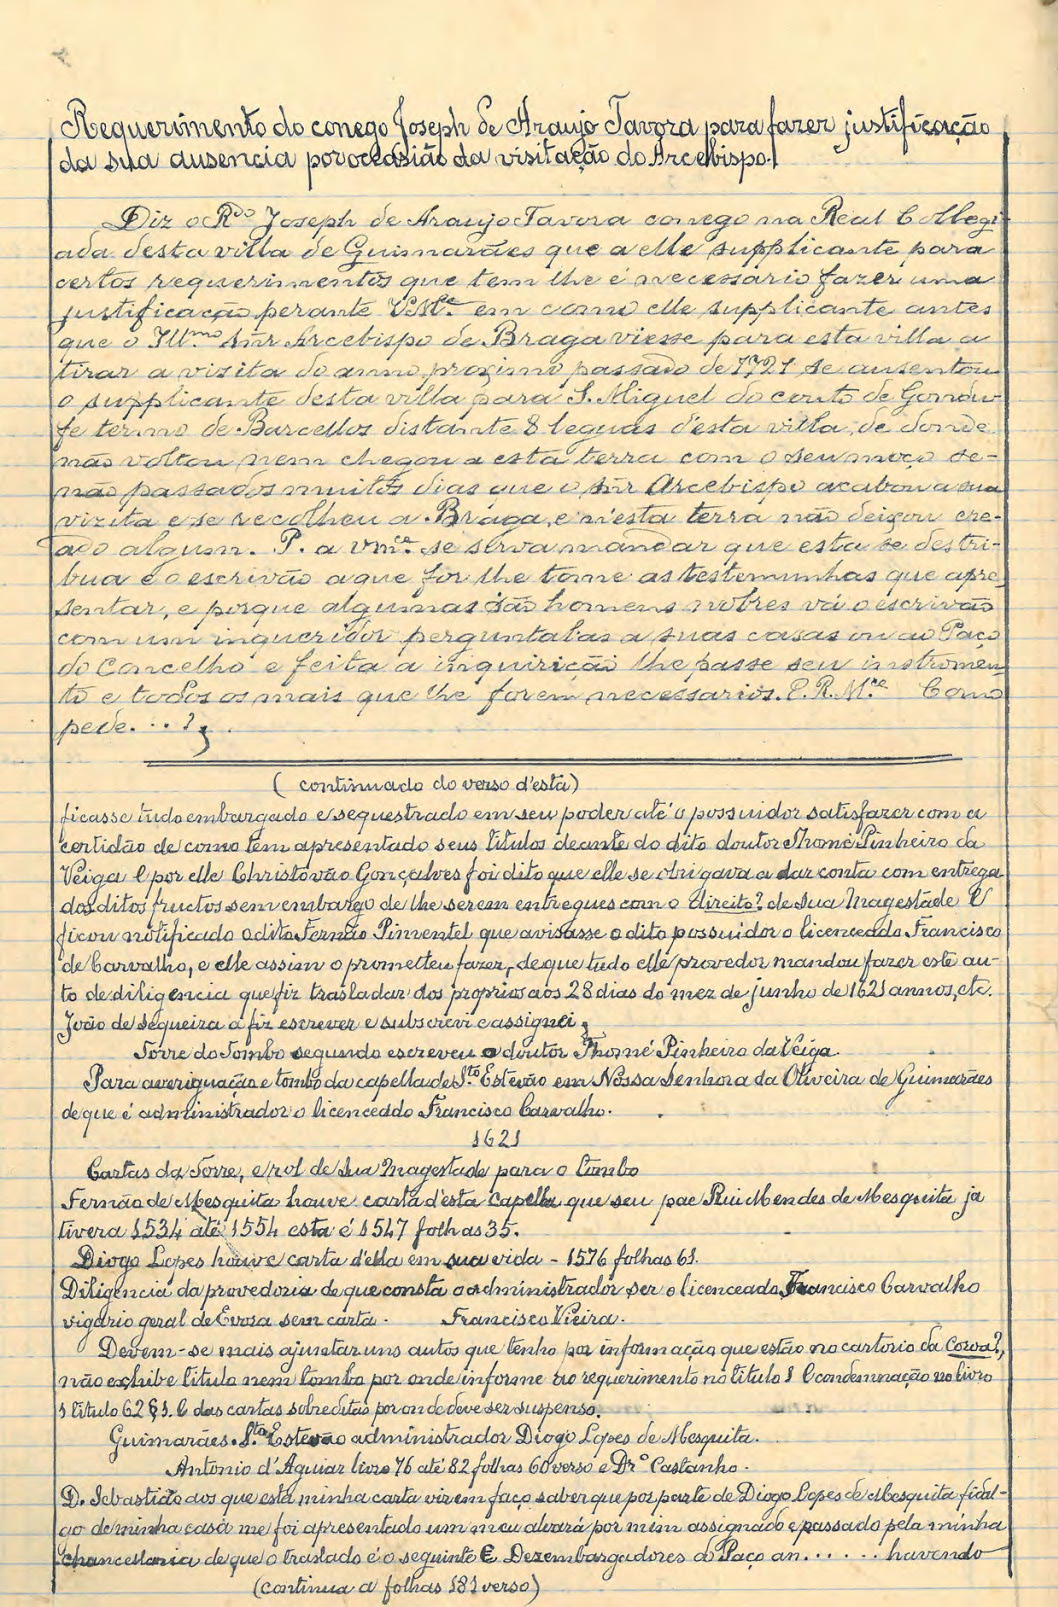 Requerimento do conego Joseph de Araujo Tavora para fazer justificação
da sua ausencia por occasião da visitação do Arcebispo.
Diz o R.do Joseph de Araujo Tavora conego na Real Collegi-
ada desta villa de Guimarães que a elle supplicante para
certos requerimentos que tem lhe é necessario fazer uma
justificação perante V.M.ce em como elle supplicante antes
que o Ill.mo Snr Arcebispo de Braga viesse para esta villa a
tirar a vizita do anno proximo passado de 1721 se ausentou
o supplicante desta villa para S. Miguel do couto de Gondu-
fe termo de Barcellos distante 8 leguas d'esta villa, de donde
não voltou nem chegou a esta terra com o seu moço se-
não passados muitos dias que o snr Arcebispo acabou a sua
vizita e se recolheu a Braga, e n'esta terra não deixou cre-
ado algum. P. a vm.ce se serva mandar que esta se destri-
bua e o escrivão a que for lhe tome as testemunhas que apre-
sentar, e porque algumas são homens nobres vá o escrivão
com um inqueridor perguntalas a suas casas ou ao Paço
do Concelho e feita a inquirição lhe passe seu instromen-
to e todos os mais que lhe forem necessarios. E. R. M.ce Como
pede. . . ?
( continuado do verso d'esta)
ficasse tudo embargado e sequestrado em seu poder até o possuidor satisfazer com a
certidão de como tem apresentado seus titulos deante do dito doutor Thomé Pinheiro da
Veiga E por elle Christovão Gonçalves foi dito que elle se obrigava a dar conta com entrega
dos ditos fructos sem embargo de lhe serem entregues com o direito? de Sua Magestade E
ficou notificado o dito Fernão Pimentel que avisasse o dito possuidor o licenceado Francisco
de Carvalho, e elle assim o prometteu fazer, de que tudo elle provedor mandou fazer este au-
to de diligencia que fiz trasladar dos proprios aos 28 dias do mez de junho de 1621 annos, etc.
João de Sequeira a fiz escrever e subscrevi e assignei
Torre do Tombo segundo escreveu o doutor Thomé Pinheiro da Veiga.
Para averiguação e tombo da capella de S.to Estevão em Nossa Senhora da Oliveira de Guimarães
de que é administrador o licenceado Francisco Carvalho.
1621
Cartas da Torre, e rol de Sua Magestade para o Tombo
Fernão de Mesquita houve carta d'esta capella que seu pae Rui Mendes de Mesquita ja
tivera 1534 até 1554 esta é 1547 folhas 35.
Diogo Lopes houve carta d'ella em sua vida - 1576 folhas 61.
Diligencia da provedoria de que consta o administrador ser o licenceado Francisco Carvalho
vigario geral de Evora sem carta. Francisco Vieira.
Devem-se mais ajuntar uns autos que tenho por informação que estão no cartorio da Coroa?,
não exhibe titulo nem tombo por onde informe ao requerimento no titulo 1 E condemnação no livro
1 titulo 62 § 1. E das cartas sobreditas por onde deve ser suspenso.
Guimarães. S.to Estevão administrador Diogo Lopes de Mesquita.
Antonio d'Aguiar livro 76 até 82 folhas 60 verso e Dr.o Castanho.
D. Sebastião aos que esta minha carta virem faço saber que por parte de Diogo Lopes de Mesquita fidal-
go de minha casa me foi apresentado um meu alvará por mim assignado e passado pela minha
chancellaria de que o traslado é o seguinte E Dezembargadores do Paço an . . . . . . havendo
(continua a folhas 181 verso)